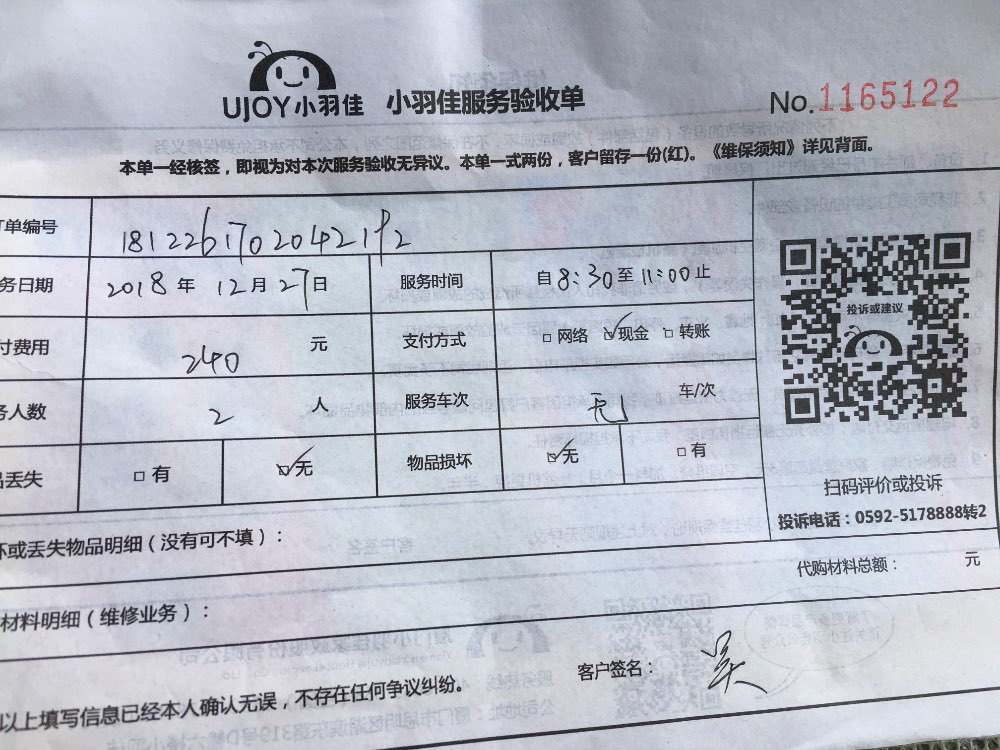 UJOY小羽佳 小羽佳服务验收单 No.1165122
本单一经核签，即视为对本次服务验收无异议。本单一式两份，客户留存一份(红)。《维保须知》详见背面。
订单编号
务日期 2018年 12月 27日 服务时间 自8:30至11:00止
付费用 240 元 支付方式 □网络 ☑现金 □转账
务人数 2 人 服务车次 无 车/次
品丢失 □有 ☑无 物品损坏 ☑无 □有
投诉或建议
扫码评价或投诉
投诉电话：0592-5178888转2
坏或丢失物品明细（没有可不填）：
代购材料总额： 元
材料明细（维修业务）：
客户签名： 吴
以上填写信息已经本人确认无误，不存在任何争议纠纷。